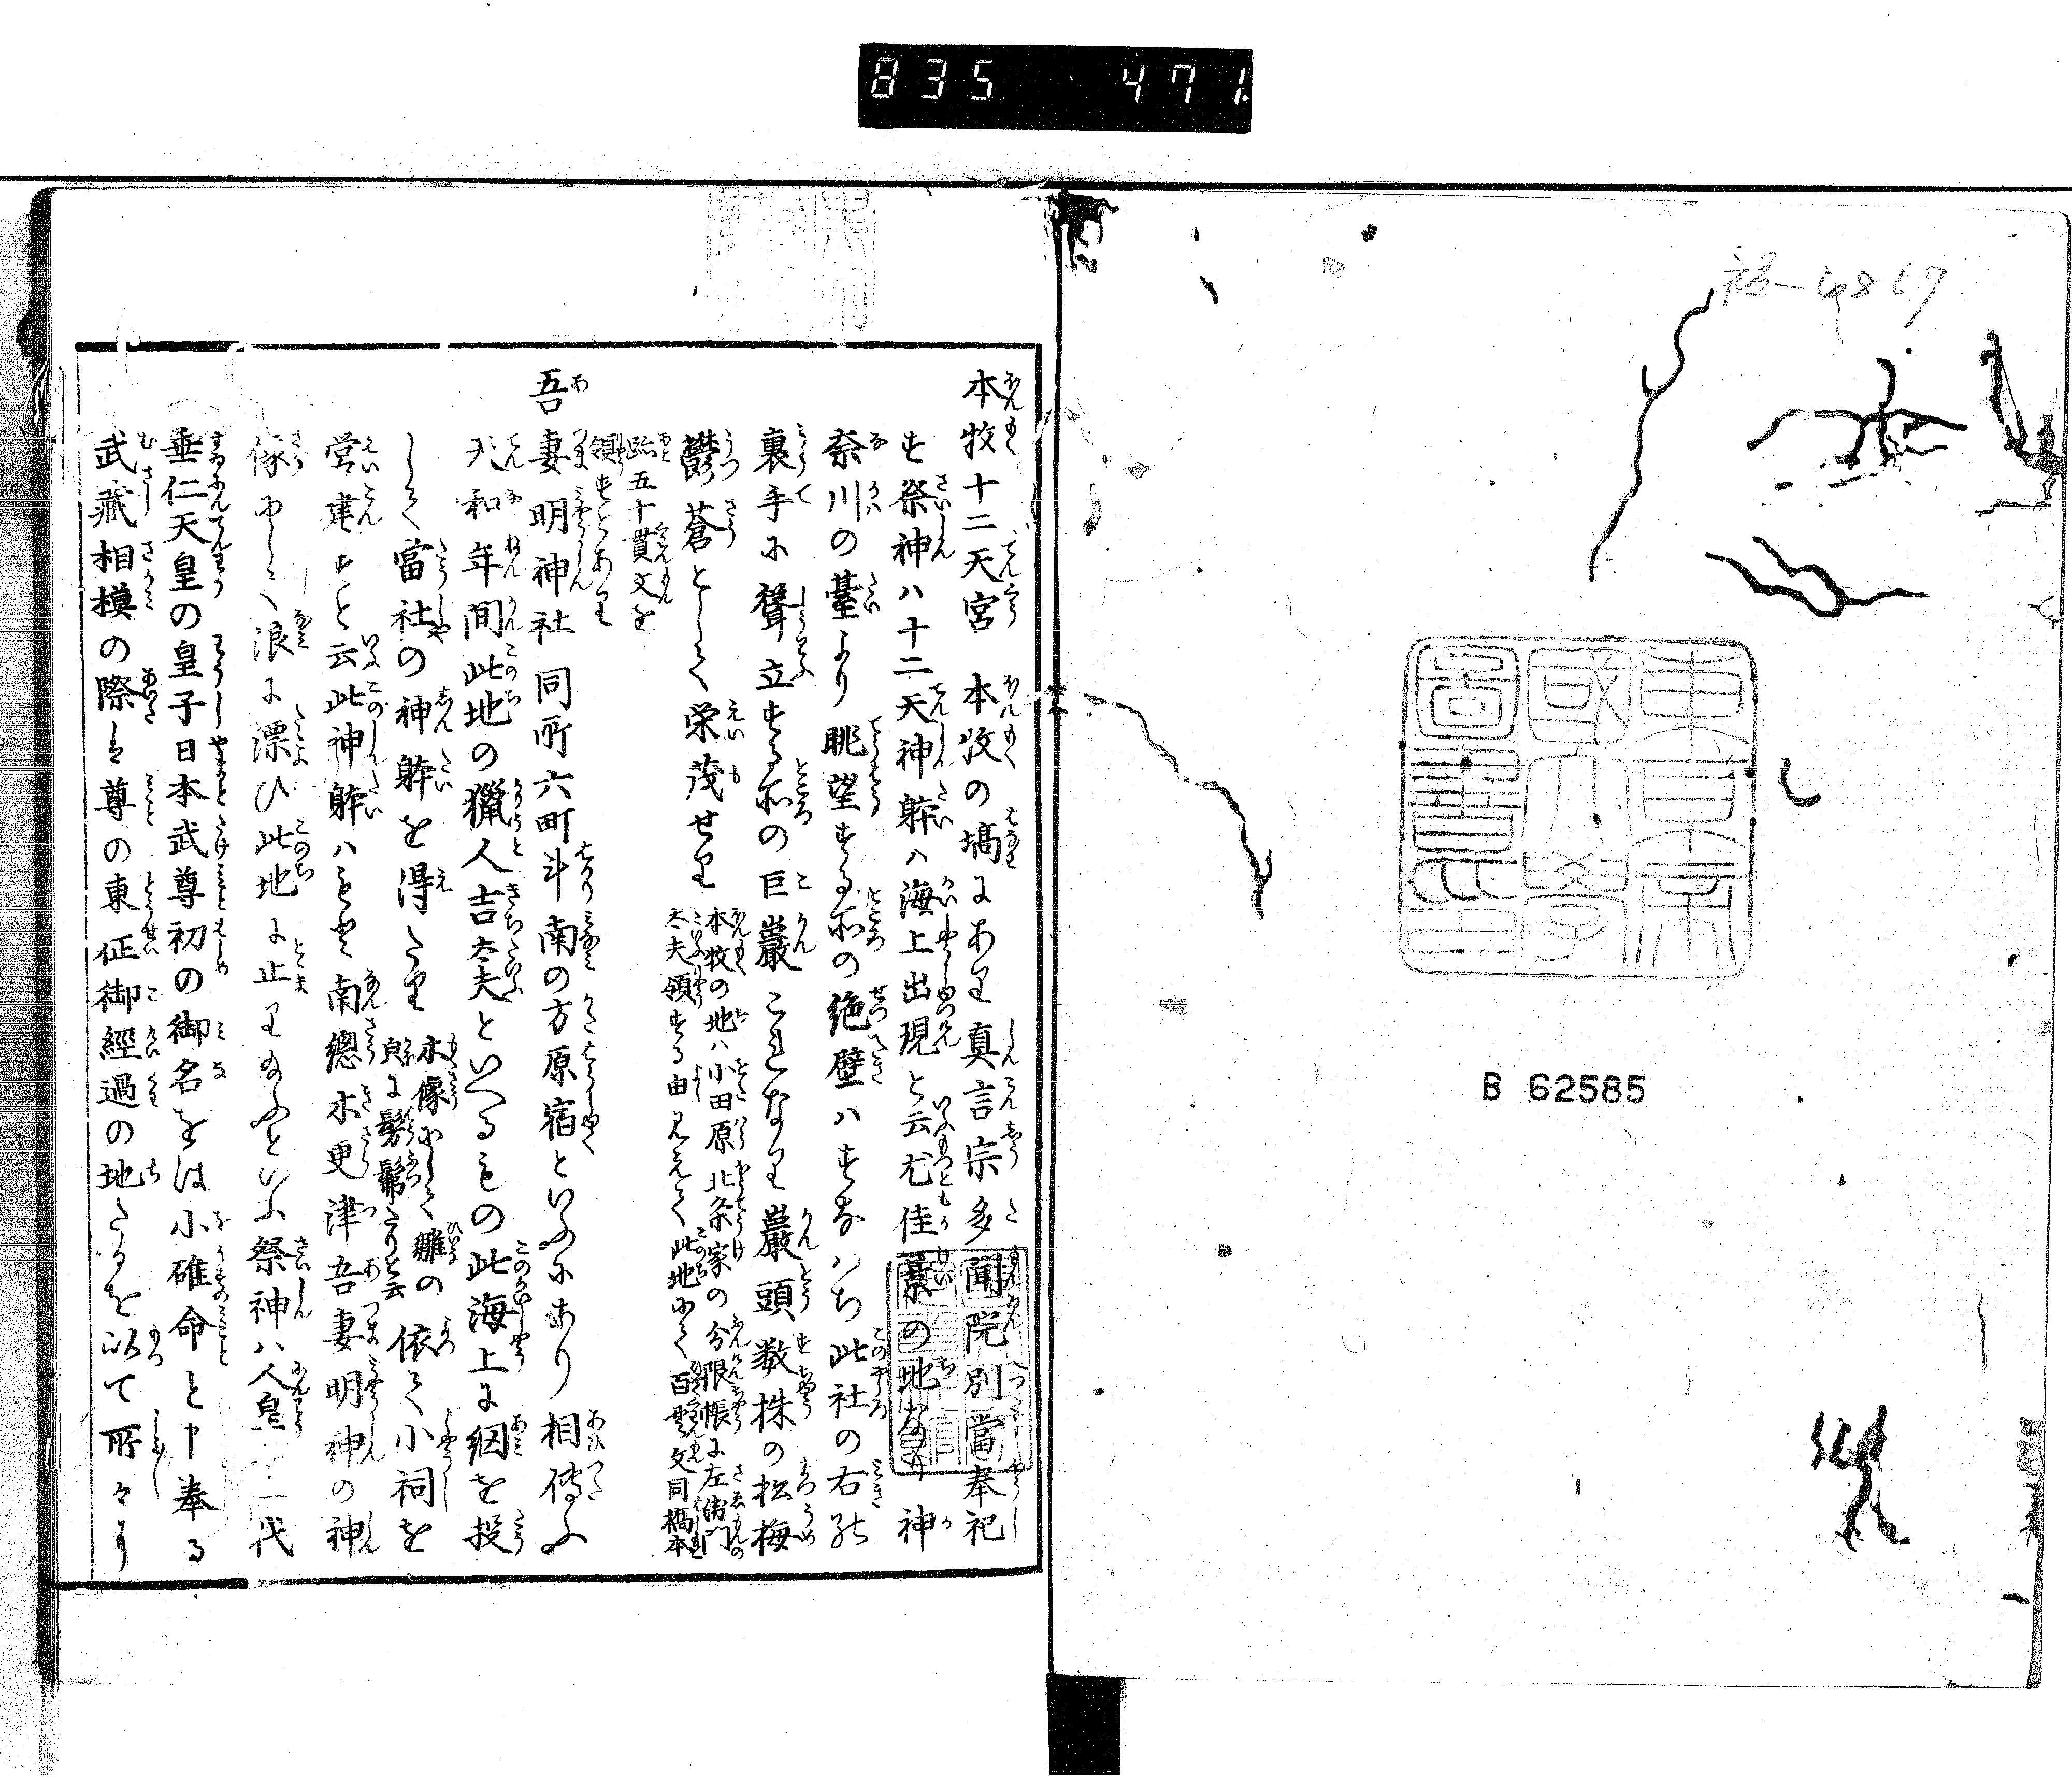 835 471
B 62585
東京帝
國大學
圖書印
本牧十二天宮 本牧の塙にあり真言宗多聞院別當奉祀
す祭神ハ十二天神躰ハ海上出現と云尤佳景の地なり神
奈川の臺より眺望する所の絶壁ハすなハち此社の右の
裏手に聳立する所の巨巖これなり巖頭数株の松梅
鬱蒼として栄茂せり
本牧の地ハ小田原北条家の分限帳に左衛門
太夫領する由見えて此地にて百貫文同橋本
五十貫文を
領すとあり
吾妻明神社 同所六町斗南の方原宿といふにあり相傳ふ
天和年間此地の獵人吉太夫といへるもの此海上に網を投
して當社の神躰を得たり
木像にして雛の
貌に髣髴たりと云
依て小祠を
営建すと云此神躰ハもと南總木更津吾妻明神の神
像にして浪に漂ひ此地に止り給ふといふ祭神ハ人皇十二代
垂仁天皇の皇子日本武尊初の御名をは小碓命と申奉る
武藏相模の際は尊の東征御經過の地たるを以て所々に